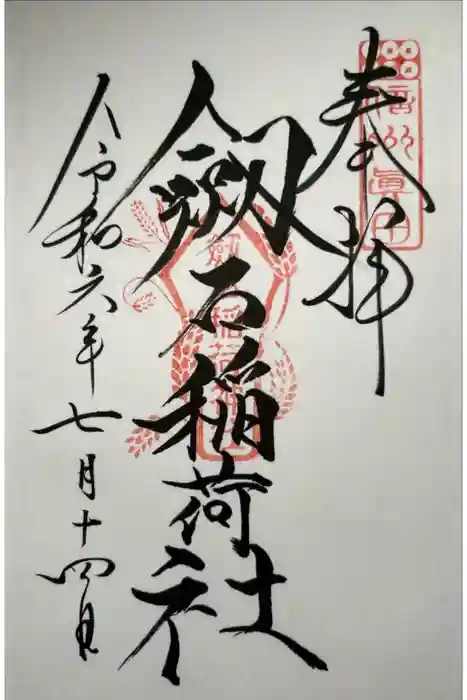 奉拝
信州眞田
劔石稲荷社
令和六年七月十四日